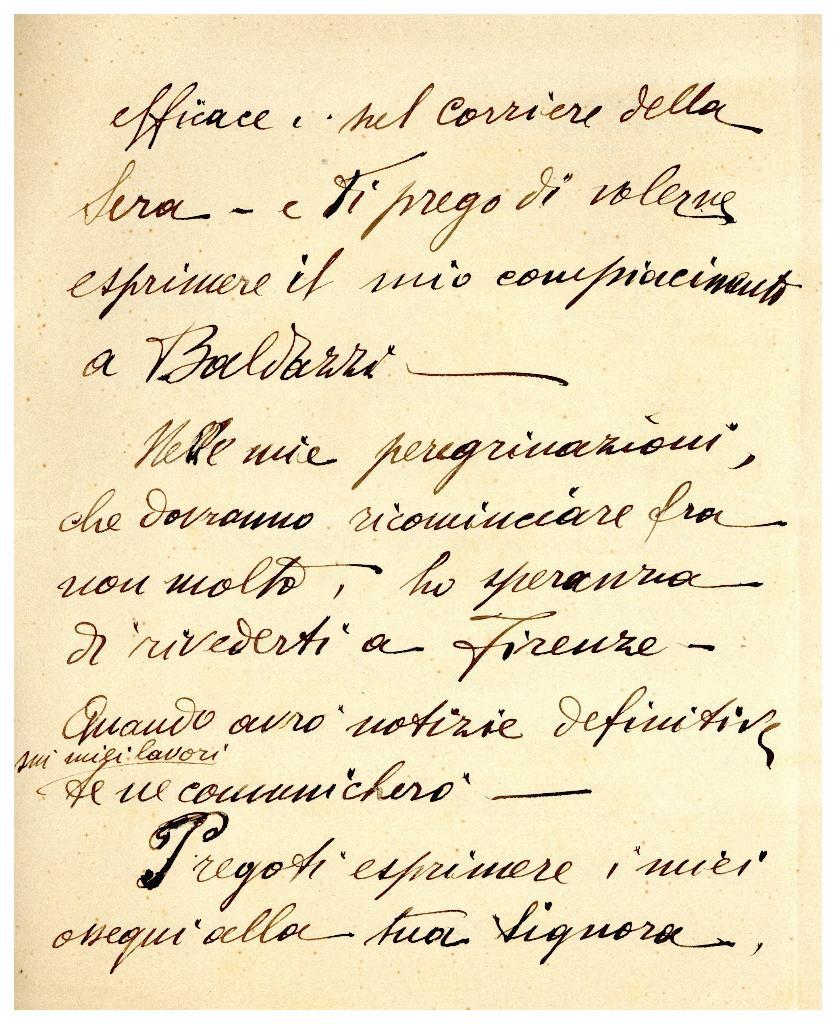 efficace e. nel Corriere della
Sera - e ti prego di volerne
esprimere il mio compiacimento
a Baldazzi —
Nelle mie peregrinazioni,
che dovranno ricominciare fra
non molto, ho speranza
di rivederti a Firenze -
Quando avrò notizie definitive
sui miei lavori
te ne comunicherò —
Pregoti esprimere i miei
ossequi alla tua Signora,